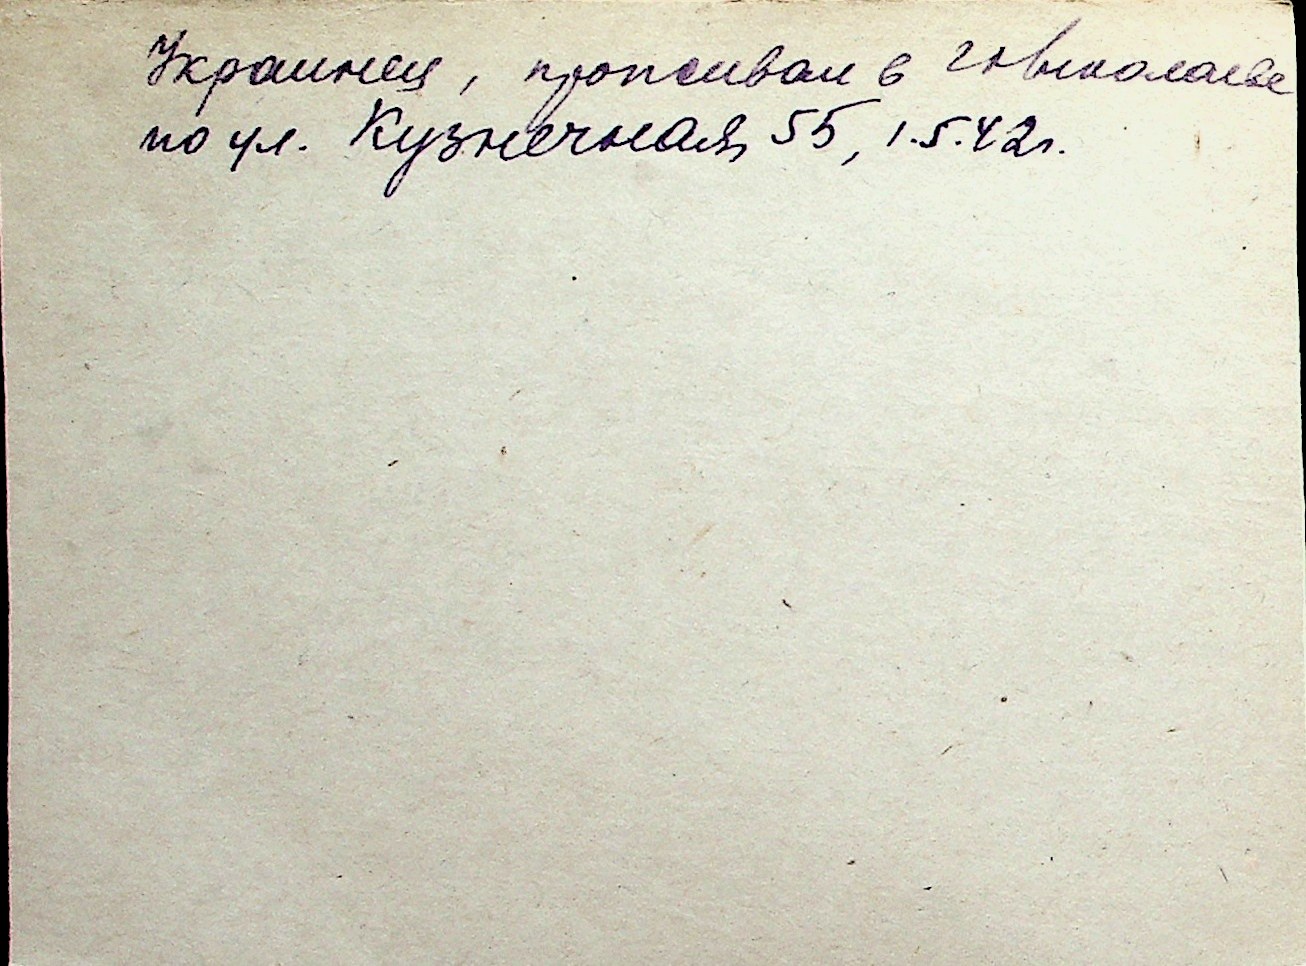 Украинец, проживал в г. Николаеве
по ул. Кузнечная, 55, 1.5.42г.